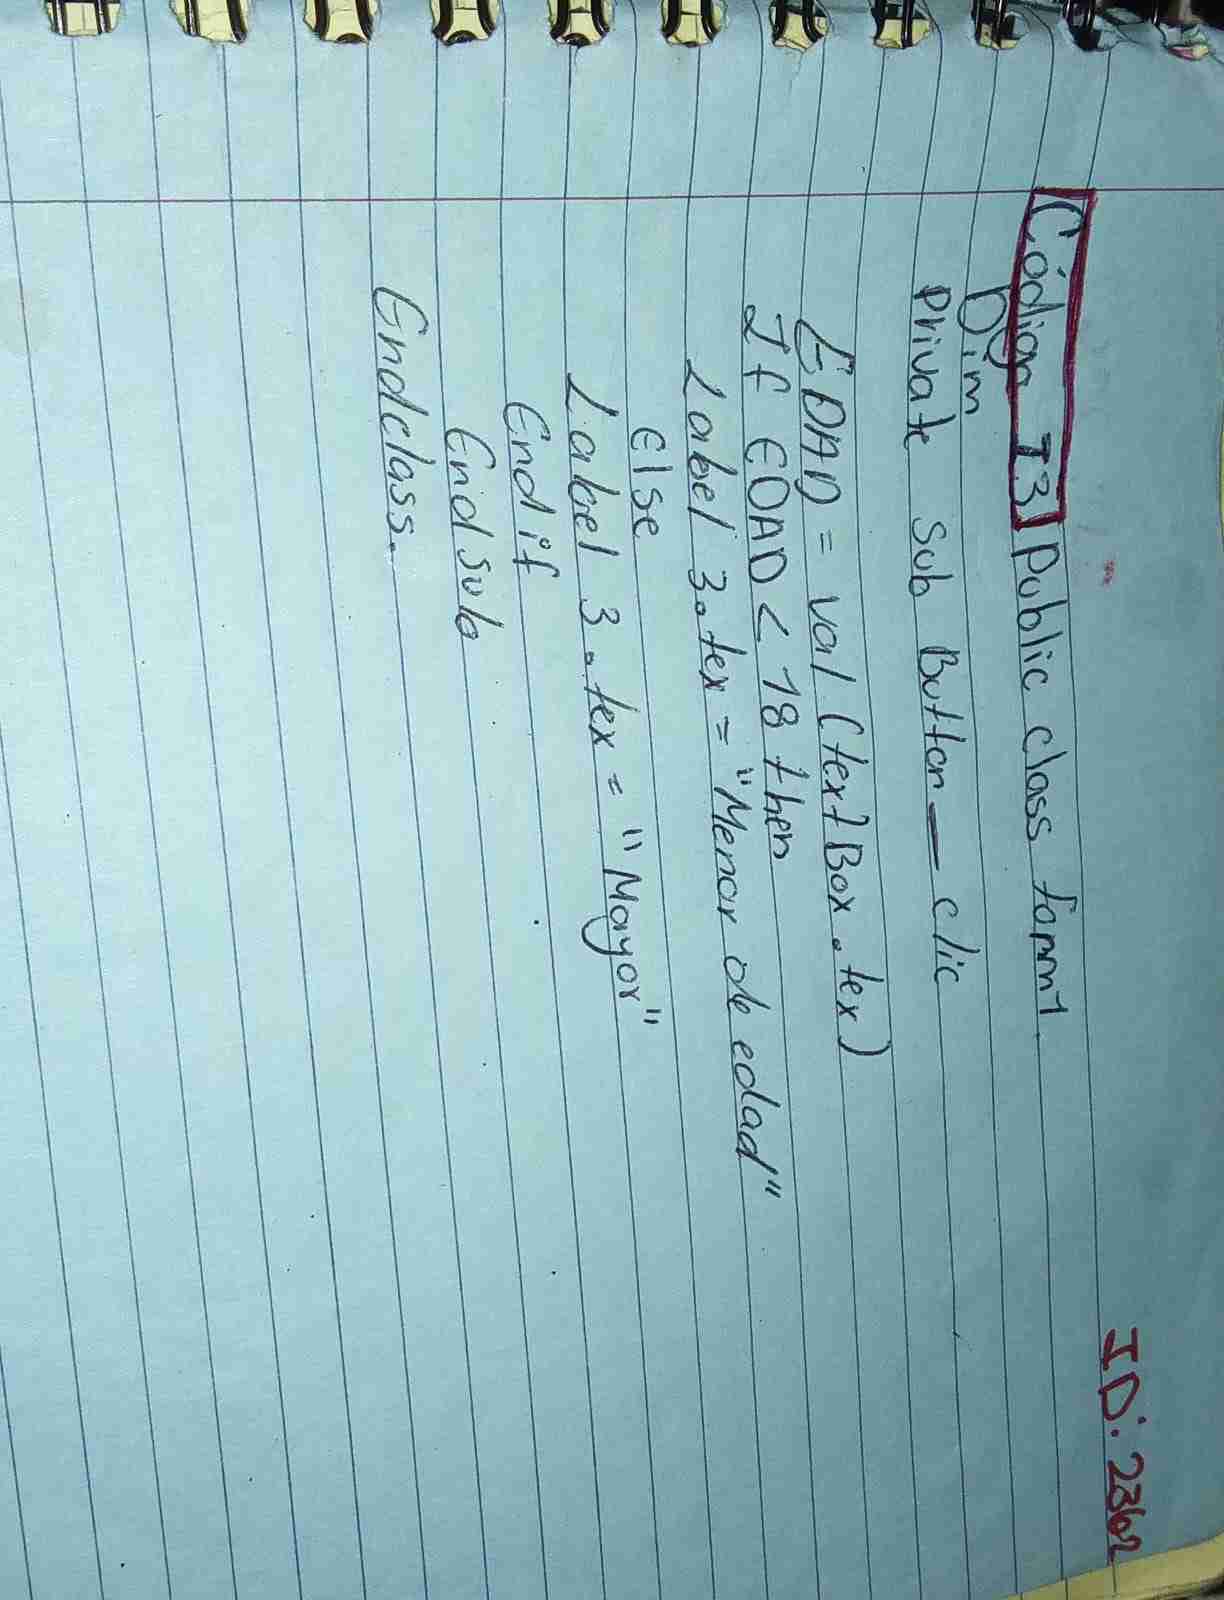 ID: 2362
Código T3 Public class form1
Dim
Private Sub Button_clic
EDAD = val (textBox.tex)
If EDAD < 18 then
Label 3.tex = "Menor de edad"
Else
Label 3.tex = "Mayor"
End if
End sub
Endclass.